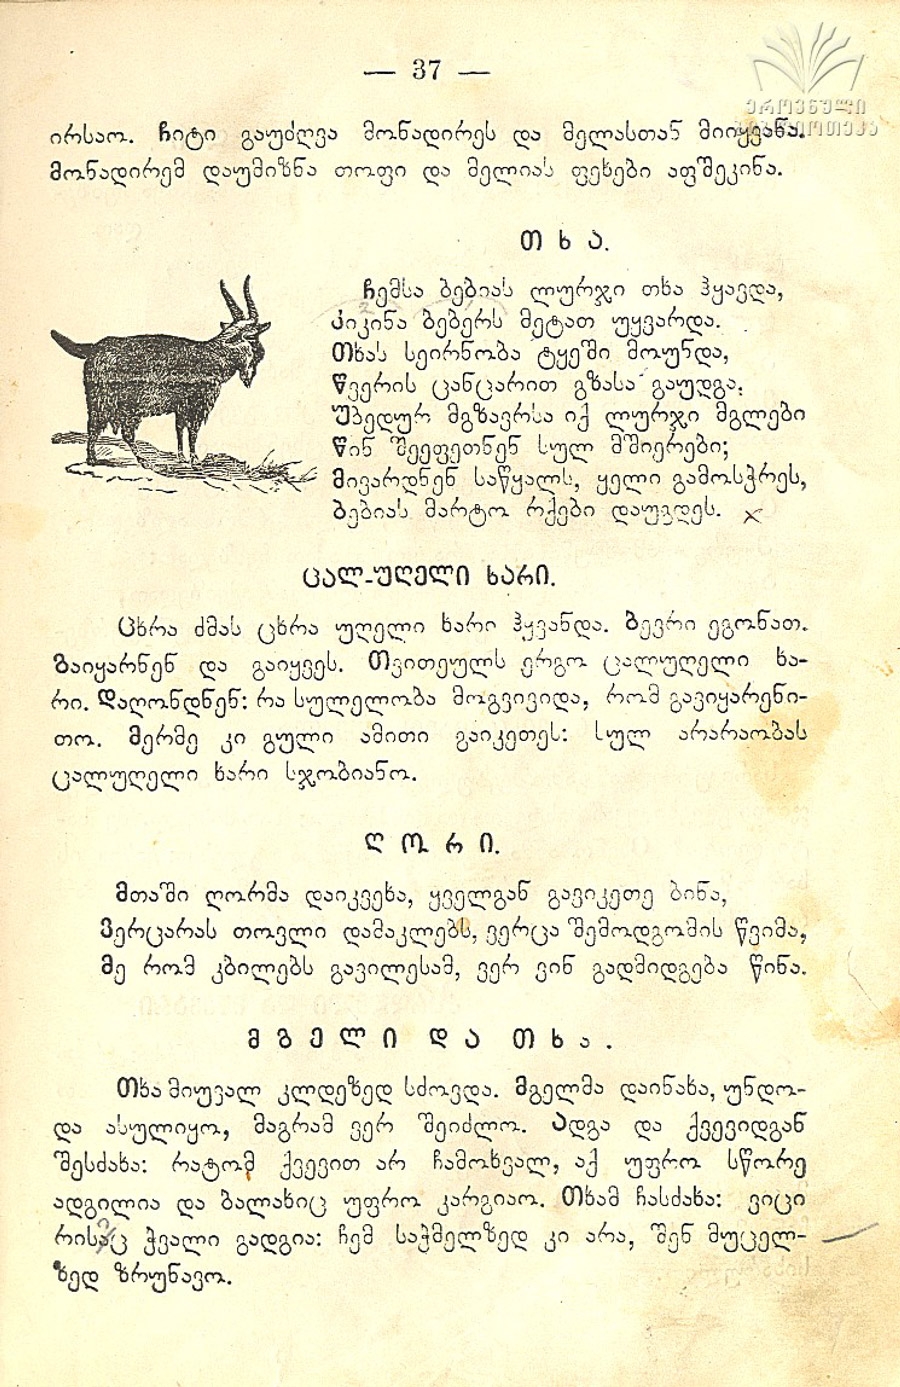 — 37 —
ეროვნული
ბიბლიოთეკა
ირსაო. ჩიტი გაუძღვა მონადირეს და მელასთან მიიყვანა.
მონადირემ დაუმიზნა თოფი და მელიას ფეხები აფშეკინა.
თხა.
ჩემსა ბებიას ლურჯი თხა ჰყავდა,
კიკინა ბებერს მეტათ უყვარდა.
თხას სეირნობა ტყეში მოუნდა,
წვერის ცანცარით გზასა გაუდგა.
უბედურ მგზავრსა იქ ლურჯი მგლები
წინ შეეფეთნენ სულ მშიერები;
მივარდნენ საწყალს, ყელი გამოსჭრეს,
ბებიას მარტო რქები დაუგდეს.
ცალ-უღელი ხარი.
ცხრა ძმას ცხრა უღელი ხარი ჰყვანდა. ბევრი ეგონათ.
წაიყარნენ და გაიყვეს. თვითეულს ერგო ცალუღელი ხა-
რი. დაღონდნენ: რა სულელობა მოგვივიდა, რომ გავიყარენი-
თო. მერმე კი გული ამითი გაიკეთეს: სულ არარაობას
ცალუღელი ხარი სჯობიანო.
ღორი.
მთაში ღორმა დაიკვეხა, ყველგან გავიკეთე ბინა,
ვერცარას თოვლი დამაკლებს, ვერცა შემოდგომის წვიმა,
მე რომ კბილებს გავილესამ, ვერ ვინ გადმიდგება წინა.
მგელი და თხა.
თხა მიუვალ კლდეზედ სძოვდა. მგელმა დაინახა, უნდო-
და ასულიყო, მაგრამ ვერ შეიძლო. ადგა და ქვევიდგან
შესძახა: რატომ ქვევით არ ჩამოხვალ, აქ უფრო სწორე
ადგილია და ბალახიც უფრო კარგიაო. თხამ ჩასძახა: ვიცი
რისაც ჭვალი გადგია: ჩემ საჭმელზედ კი არა, შენ მუცელ-
ზედ ზრუნავო.